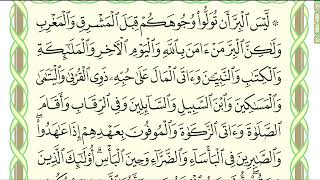 ۞ لَّيْسَ ٱلْبِرَّ أَن تُوَلُّوا۟ وُجُوهَكُمْ قِبَلَ ٱلْمَشْرِقِ وَٱلْمَغْرِبِ
وَلَٰكِنَّ ٱلْبِرَّ مَنْ ءَامَنَ بِٱللَّهِ وَٱلْيَوْمِ ٱلْءَاخِرِ وَٱلْمَلَٰٓئِكَةِ
وَٱلْكِتَٰبِ وَٱلنَّبِيِّـۧنَ وَءَاتَى ٱلْمَالَ عَلَىٰ حُبِّهِۦ ذَوِى ٱلْقُرْبَىٰ وَٱلْيَتَٰمَىٰ
وَٱلْمَسَٰكِينَ وَٱبْنَ ٱلسَّبِيلِ وَٱلسَّآئِلِينَ وَفِى ٱلرِّقَابِ وَأَقَامَ
ٱلصَّلَوٰةَ وَءَاتَى ٱلزَّكَوٰةَ وَٱلْمُوفُونَ بِعَهْدِهِمْ إِذَا عَٰهَدُوا۟ ۖ
وَٱلصَّٰبِرِينَ فِى ٱلْبَأْسَآءِ وَٱلضَّرَّآءِ وَحِينَ ٱلْبَأْسِ ۗ أُو۟لَٰٓئِكَ ٱلَّذِينَ